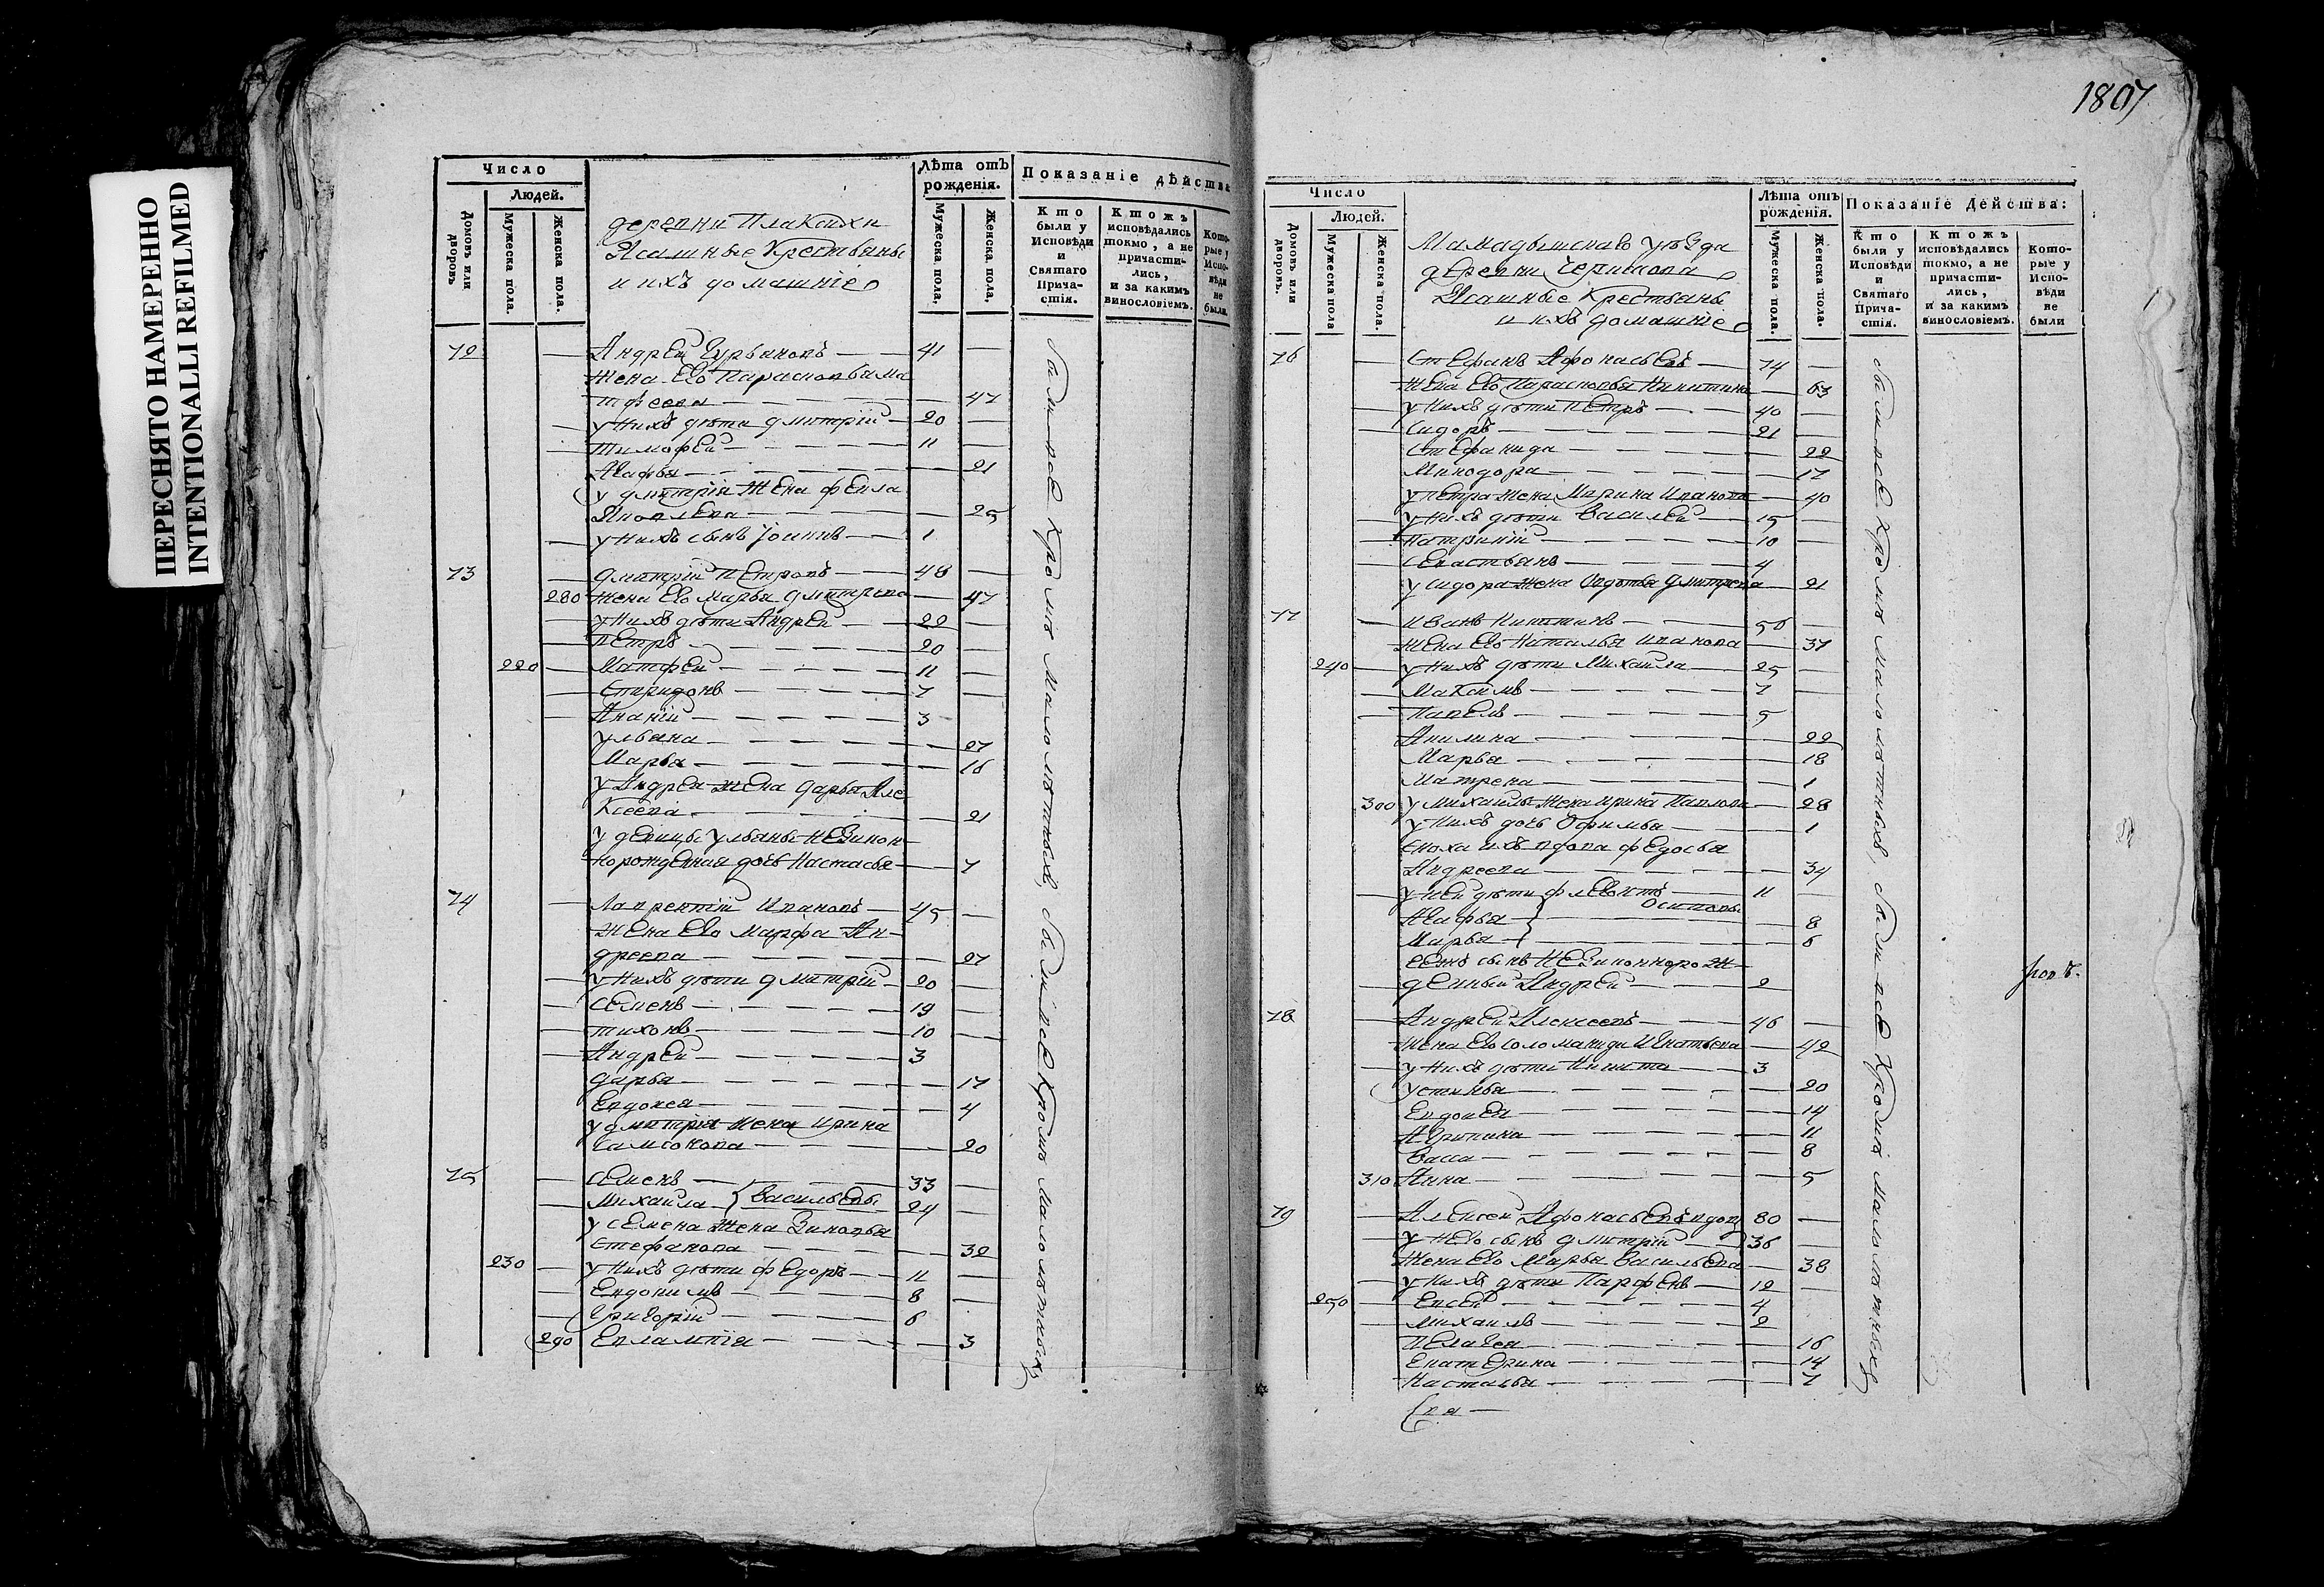 ПЕРЕСНЯТО НАМЕРЕННО
INTENTIONALLI REFILMED
Число
Людей.
Домовъ или дворовъ.
Мужеска пола.
Женска пола.
деревни
Ясашные Крестьяне
и ихъ домашнiе
Лѣта отъ рожденiя.
Мужеска пола.
Женска пола.
Показанiе дѣйства
Кто были у Исповѣди и Святаго Прича-стiя.
Ктожъ исповѣдались токмо, а не причасти-лись, и за какимъ винословiемъ.
Кото-рые у Испо-вѣди не были.
72 Андрей Гурьяновъ 41
жена его Парасковья Ма
тфеева 47
у нихъ дѣти Дмитрiй 20
Тимофей 11
Агафья 21
у Дмитрiя жена Фекла
Яковлева 25
у нихъ сынъ Iоаннъ 1
73 Дмитрiй Петровъ 48
280 жена его Марья Дмитрева 47
у нихъ дѣти Андрей 22
Петръ 20
220 Матфей 11
Спиридонъ 7
Ананiй 3
Ульяна 27
Марья 16
у Андрея жена Дарья Але
ксеева 21
у девицы Ульяны незакон
норожденная дочь Настасья 7
74 Лаврентiй Ивановъ 45
жена его Марфа Ан-
дреева 27
у нихъ дѣти Дмитрiй 20
Семенъ 19
Тихонъ 10
Андрей 3
Дарья 17
Евдокея 4
у Дмитрiя жена Ирина
Самсонова 20
75 Семенъ 33
Михаила } Васильевы 24
у Семена жена Зиновья
Стефанова 32
230 у нихъ дѣти Федоръ 11
Евдокимъ 8
Григорiй 6
290 Евлампiя 3
были все кромѣ малолѣтныхъ, были все кромѣ малолѣтныхъ
1807
Число
Людей.
Домовъ или дворовъ.
Мужеска пола
Женска пола.
Мамадышскаго уѣзда
деревни
Ясашные Крестьяне
и ихъ домашнiе
Лѣта отъ рожденiя.
Мужеска пола.
Женска пола.
Показанiе Дейсiтва:
Кто были у Исповѣди и Святаго Прича-стiя.
Ктожъ исповѣдались токмо, а не причасти-лись, и за какимъ винословiемъ.
Кото-рые у Испо-вѣди не были
76 Стефанъ Афонасьевъ 74
жена его Парасковья Никитина 63
у нихъ дѣти Петръ 40
Сидоръ 21
Стефанида 22
Минодора 17
у Петра жена Марина Иванова 40
у нихъ дѣти Василей 15
Патрикiй 10
Севастьянъ 4
у Сидора жена Авдотья Дмитрева 21
77 Иванъ Никитинъ 56
жена его Наталья Иванова 37
240 у нихъ дѣти Михаила 25
Максимъ 7
Павелъ 5
Акилина 22
Марья 18
Матрена 1
300 у Михаилы жена Ирина Павлова 28
у нихъ дочь Офимья 1
сноха ихъ вдова Федосья
Андреева 34
у ней дѣти Флегонтъ 11
Осиповы
Агафья 8
Марья 6
сынъ незаконнорож-
денный Андрей 2
78 Андрей Алексеевъ 46
жена его Соломанида Игнатьева 42
у нихъ дѣти Никита 3
Устинья 20
Евдокея 14
Агрипина 11
Васса 8
310 Анна 5
79 Алексей Афонасьевъ вдов 80
у него сынъ Дмитрiй 36
жена его Марья Васильева 38
у нихъ дѣти Парфенъ 12
250 Евсей 4
Михаилъ 2
Пелагея 16
Екатерина 14
Настасья 7
были все кромѣ малолѣтныхъ, были все кромѣ малолѣтныхъ